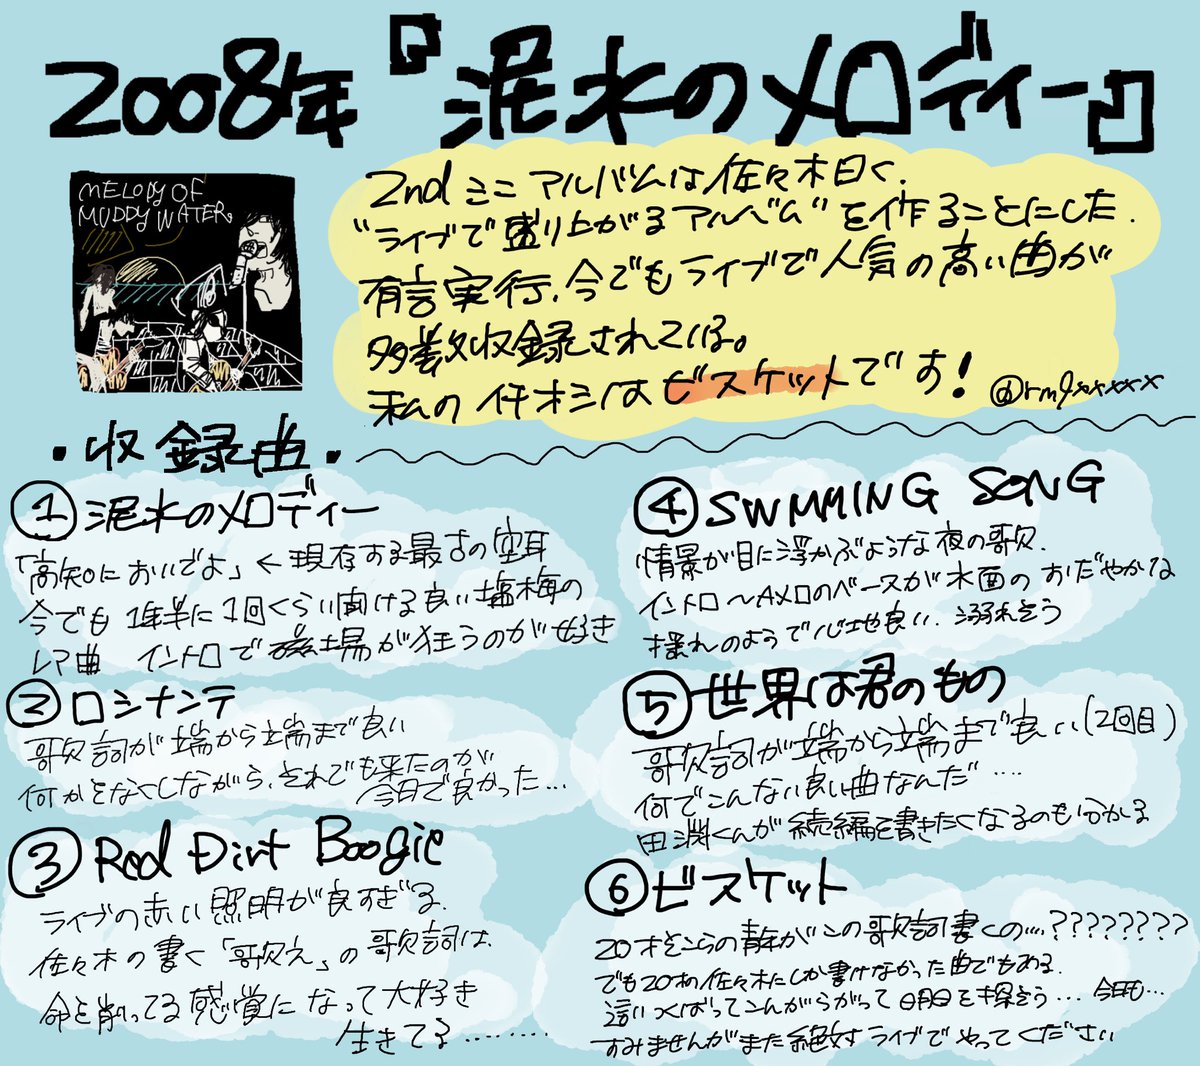 2008年『泥水のメロディー』
MELODY OF
MUDDY WATER。
2nd ミニ アルバムは佐々木曰く、
"ライブで盛り上がるアルバム"を作ることにした.
有言実行、今でもライブで人気の高い曲が
多数収録されている。
私のイチオシはビスケットです!
@rm9xxxxx
・収録曲・
①泥水のメロディー
「高知においでよ」←現存する最古の空耳
今でも1年半に1回くらい聞ける良い塩梅の
レア曲 イントロで磁場が狂うのが好き
②ロシナンテ
歌詞が端から端まで良い
何かをなくしながら、それでも来たのが
今日で良かった…
③Red Dirt Boogie
ライブの赤い照明が良すぎる、
佐々木の書く「歌え」の歌詞は、
命を削ってる感覚になって大好き
生きてる………
④SWMMING SONG
情景が目に浮かぶような夜の歌、
イントロ〜Aメロのベースが水面のおだやかな
揺れのようで心地良い、溺れそう
⑤世界は君のもの
歌詞が端から端まで良い(2回目)
何でこんな良い曲なんだ….
田淵くんが続編を書きたくなるのも分かる
⑥ビスケット
20才そこらの青年がこの歌詞書くの….????????
でも20才の佐々木にしか書けなかった曲でもある、
這いつくばってこんがらがって明日を探そう… 今日も…
すみませんがまた絶対ライブでやってください